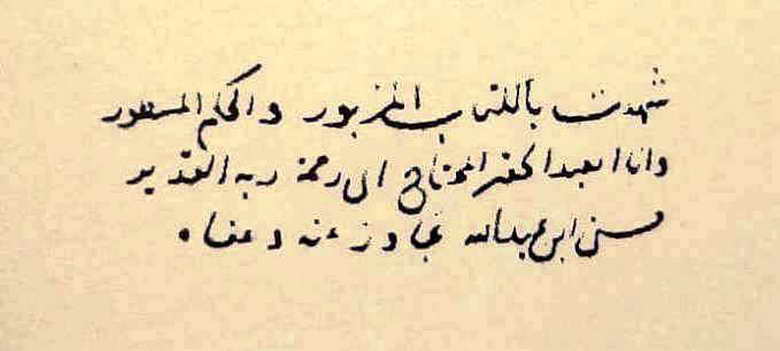 شهدت بالكتاب المزبور والحكم المسطور
وانا العبد الحقير المحتاج الى رحمة ربه القدير
حسن ابن عبدالله تجاوز عنه وعفاه